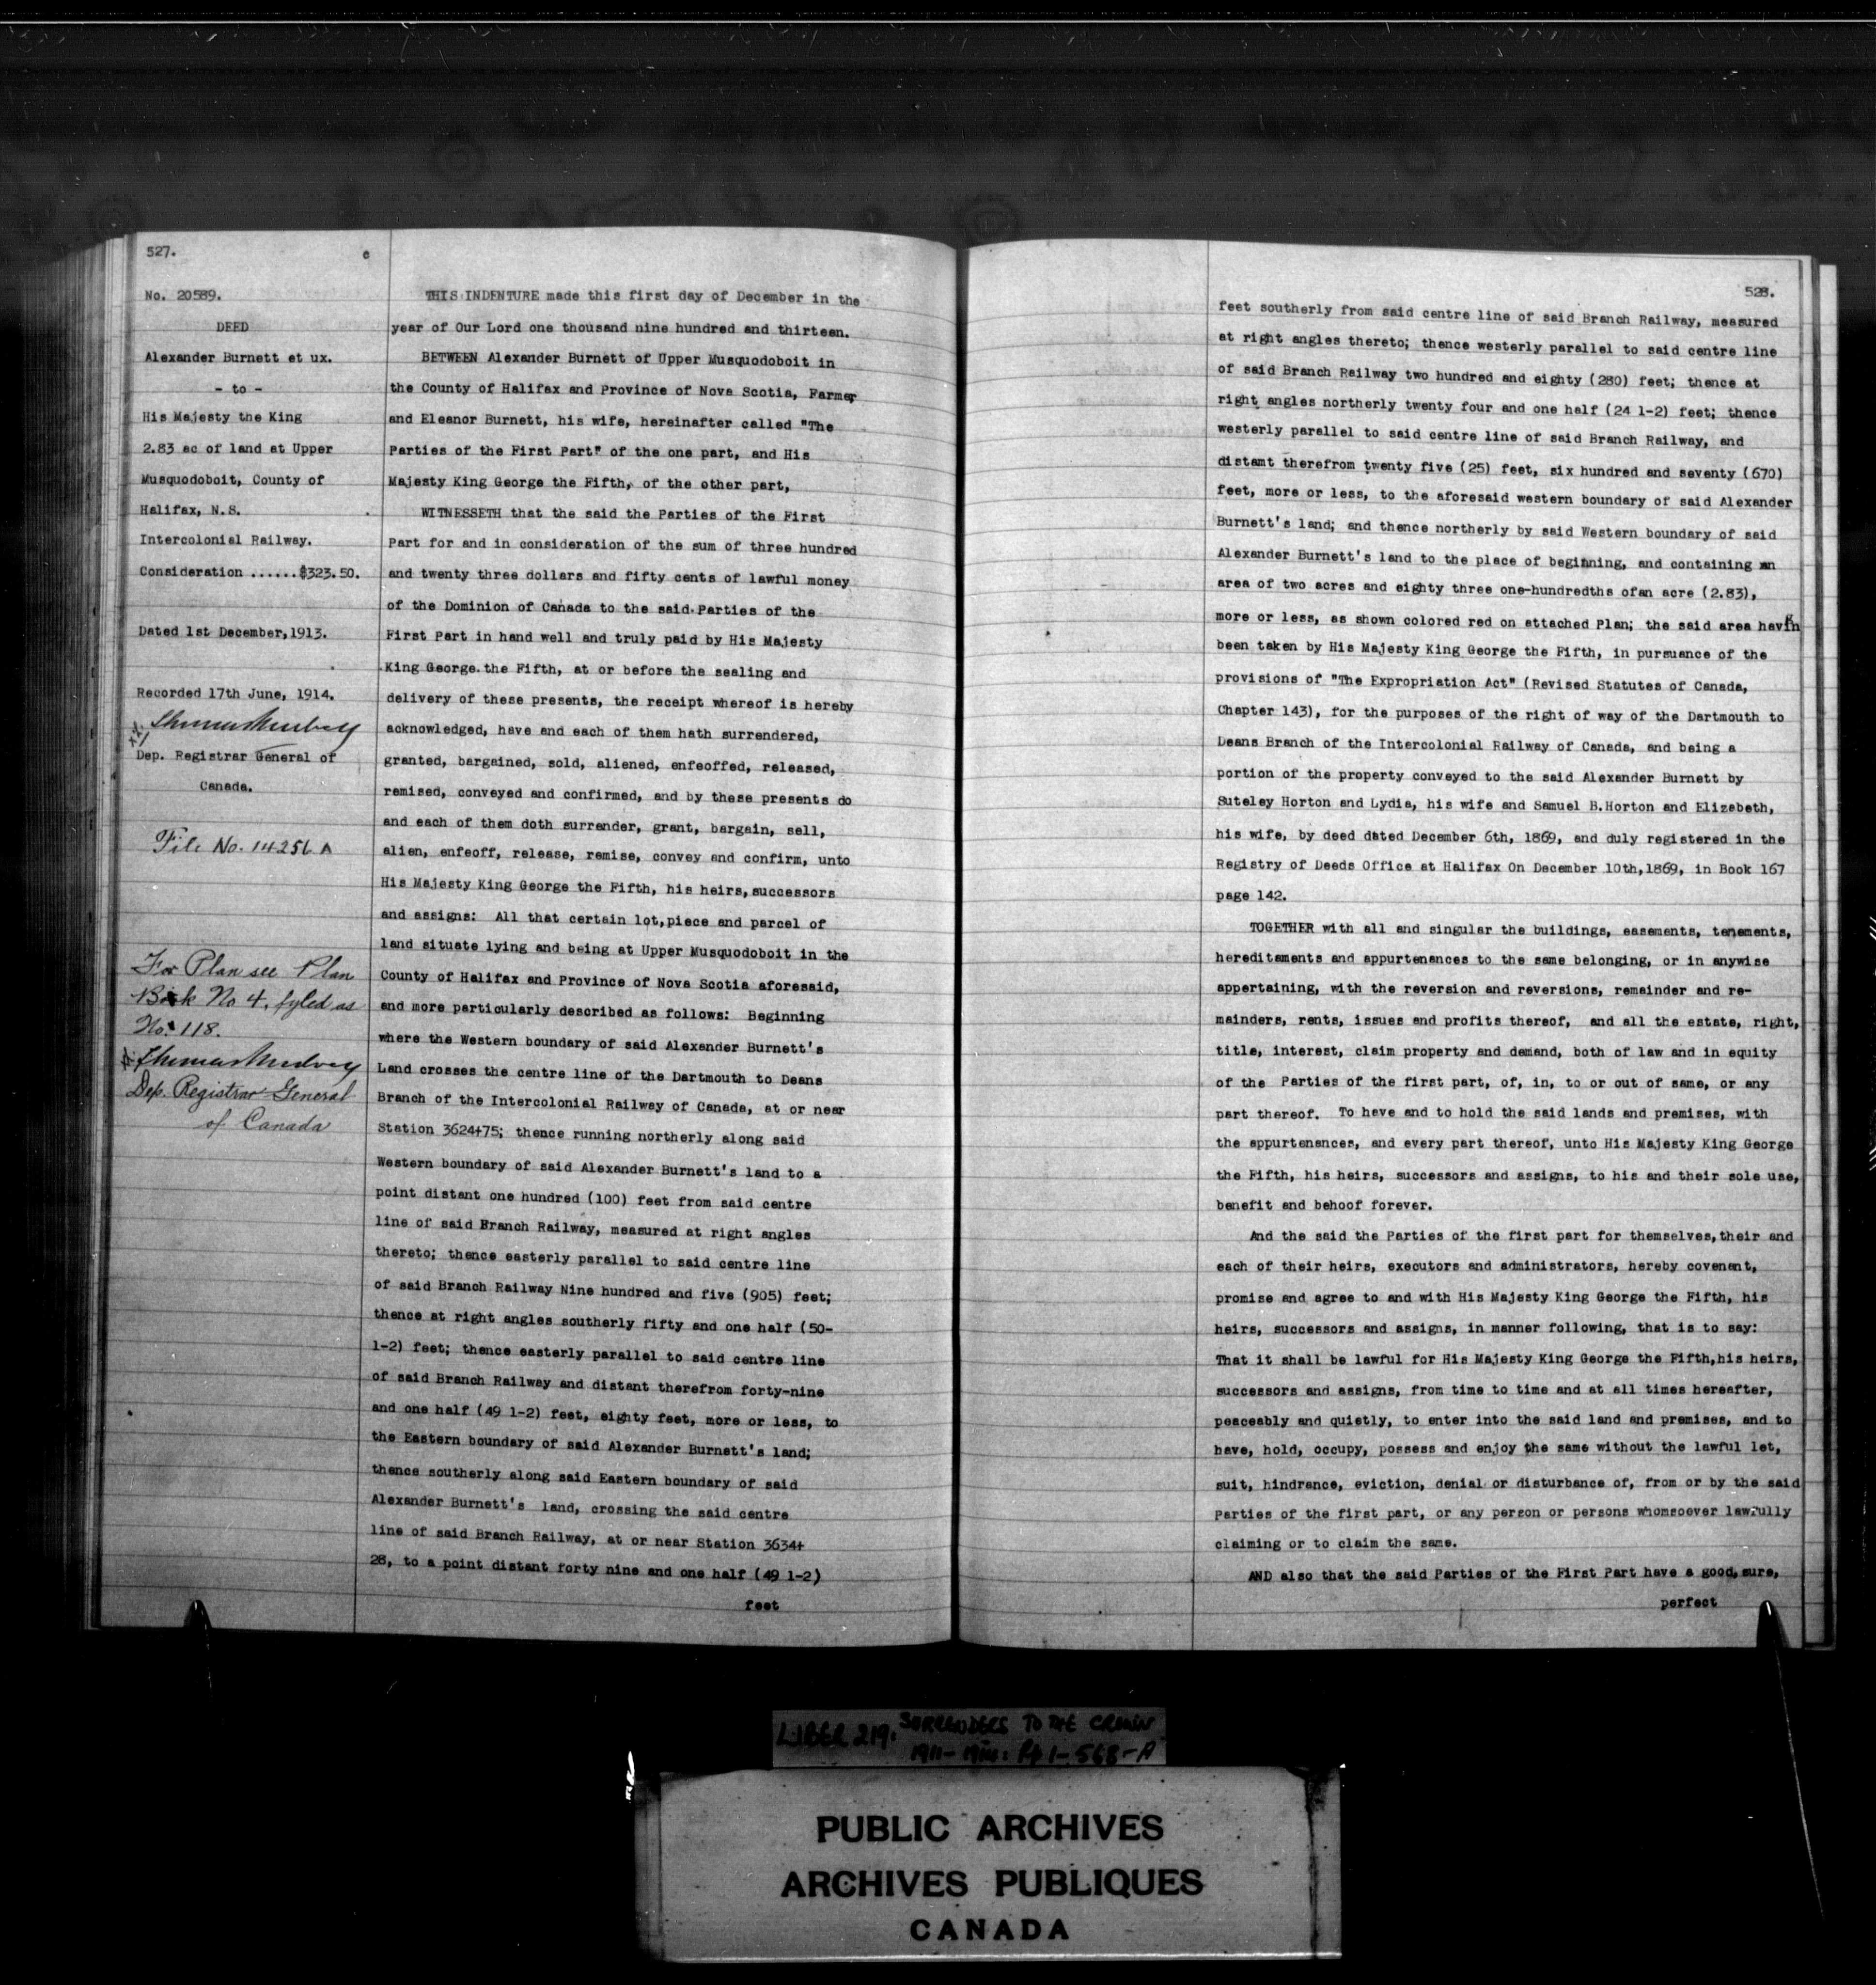 527.
No. 20589.
DEED
Alexander Burnett et ux.
- to -
His Majesty the King
2.83 ac of land at Upper
Musquodoboit, County of
Halifax, N.S.
Intercolonial Railway.
Consideration ......$323.50.
Dated 1st December,1913.
Recorded 17th June, 1914.
Dep. Registrar General of
Canada.
File No. 14256 A
For Plan see Plan
Book No 4, fyled as
No. 118.
Dep. Registrar General
of Canada
THIS INDENTURE made this first day of December in the
year of Our Lord one thousand nine hundred and thirteen.
BETWEEN Alexander Burnett of Upper Musquodoboit in
the County of Halifax and Province of Nova Scotia, Farmer
and Eleanor Burnett, his wife, hereinafter called "The
Parties of the First Part" of the one part, and His
Majesty King George the Fifth, of the other part,
WITNESSETH that the said the Parties of the First
Part for and in consideration of the sum of three hundred
and twenty three dollars and fifty cents of lawful money
of the Dominion of Canada to the said Parties of the
First Part in hand well and truly paid by His Majesty
King George the Fifth, at or before the sealing and
delivery of these presents, the receipt whereof is hereby
acknowledged, have and each of them hath surrendered,
granted, bargained, sold, aliened, enfeoffed, released,
remised, conveyed and confirmed, and by these presents do
and each of them doth surrender, grant, bargain, sell,
alien, enfeoff, release, remise, convey and confirm, unto
His Majesty King George the Fifth, his heirs,successors
and assigns: All that certain lot,piece and parcel of
land situate lying and being at Upper Musquodoboit in the
County of Halifax and Province of Nova Scotia aforesaid,
and more particularly described as follows: Beginning
where the Western boundary of said Alexander Burnett's
Land crosses the centre line of the Dartmouth to Deans
Branch of the Intercolonial Railway of Canada, at or near
Station 3624+75; thence running northerly along said
Western boundary of said Alexander Burnett's land to a
point distant one hundred (100) feet from said centre
line of said Branch Railway, measured at right angles
thereto; thence easterly parallel to said centre line
of said Branch Railway Nine hundred and five (905) feet;
thence at right angles southerly fifty and one half (50-
1-2) feet; thence easterly parallel to said centre line
of said Branch Railway and distant therefrom forty-nine
and one half (49 1-2) feet, eighty feet, more or less, to
the Eastern boundary of said Alexander Burnett's land;
thence southerly along said Eastern boundary of said
Alexander Burnett's land, crossing the said centre
line of said Branch Railway, at or near Station 3634+
28, to a point distant forty nine and one half (49 1-2)
feet
528.
feet southerly from said centre line of said Branch Railway, measured
at right angles thereto; thence westerly parallel to said centre line
of said Branch Railway two hundred and eighty (280) feet; thence at
right angles northerly twenty four and one half (24 1-2) feet; thence
westerly parallel to said centre line of said Branch Railway, and
distamt therefrom twenty five (25) feet, six hundred and seventy (670)
feet, more or less, to the aforesaid western boundary of said Alexander
Burnett's land; and thence northerly by said Western boundary of said
Alexander Burnett's land to the place of beginning, and containing an
area of two acres and eighty three one-hundredths ofan acre (2.83),
more or less, as shown colored red on attached Plan; the said area having
been taken by His Majesty King George the Fifth, in pursuance of the
provisions of "The Expropriation Act" (Revised Statutes of Canada,
Chapter 143), for the purposes of the right of way of the Dartmouth to
Deans Branch of the Intercolonial Railway of Canada, and being a
portion of the property conveyed to the said Alexander Burnett by
Suteley Horton and Lydia, his wife and Samuel B.Horton and Elizabeth,
his wife, by deed dated December 6th, 1869, and duly registered in the
Registry of Deeds Office at Halifax On December 10th,1869, in Book 167
page 142.
TOGETHER with all and singular the buildings, easements, tenements,
hereditaments and appurtenances to the same belonging, or in anywise
appertaining, with the reversion and reversions, remainder and re-
mainders, rents, issues and profits thereof, and all the estate, right,
title, interest, claim property and demand, both of law and in equity
of the Parties of the first part, of, in, to or out of same, or any
part thereof. To have and to hold the said lands and premises, with
the appurtenances, and every part thereof, unto His Majesty King George
the Fifth, his heirs, successors and assigns, to his and their sole use,
benefit and behoof forever.
And the said the Parties of the first part for themselves,their and
each of their heirs, executors and administrators, hereby covenant,
promise and agree to and with His Majesty King George the Fifth, his
heirs, successors and assigns, in manner following, that is to say:
That it shall be lawful for His Majesty King George the Fifth,his heirs,
successors and assigns, from time to time and at all times hereafter,
peaceably and quietly, to enter into the said land and premises, and to
have, hold, occupy, possess and enjoy the same without the lawful let,
suit, hindrance, eviction, denial or disturbance of, from or by the said
Parties of the first part, or any person or persons whomsoever lawfully
claiming or to claim the same.
AND also that the said Parties of the First Part have a good,sure,
perfect
LIBER 219. SURRENDERS TO THE CROWN
1911-1914: Pp 1-568-A
PUBLIC ARCHIVES
ARCHIVES PUBLIQUES
CANADA